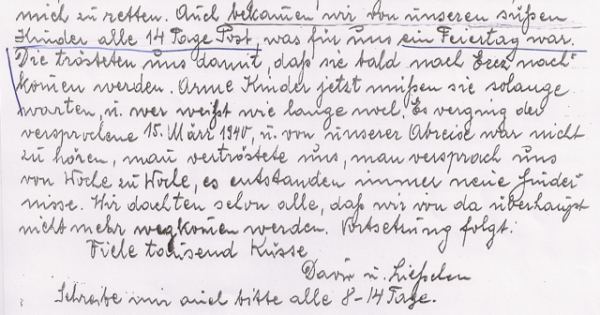 mich zu retten. Auch bekamen wir von unseren süßen
Kinder alle 14 Tage Post, was für uns ein Feiertag war.
Die trösteten uns damit, daß sie bald nach Erez nach-
komen werden. Arme Kinder jetzt müßen sie solange
warten, u. wer weißt wie lange noch. Es verging der
versprochene 15. März 1940, u. von unserer Abreise war nicht
zu hören, man vertröstete uns, man versprach uns
von Woche zu Woche, es entstanden immer neue Hinder-
nisse. Wir dachten schon alle, daß wir von da überhaupt
nicht mehr wegkomen werden. Fortsetzung folgt.
Fiele tausend Küsse
u.
Schreibe mir auch bitte alle 8-14 Tage.